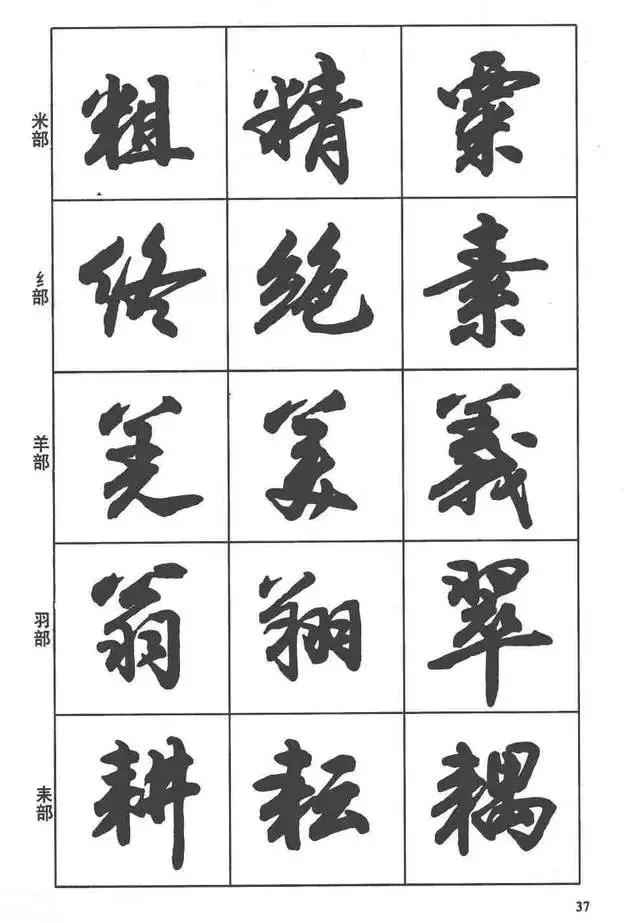 米部 粗 精 粟
纟部 终 绝 素
羊部 羌 美 義
羽部 翁 翔 翠
耒部 耕 耘 耦
37